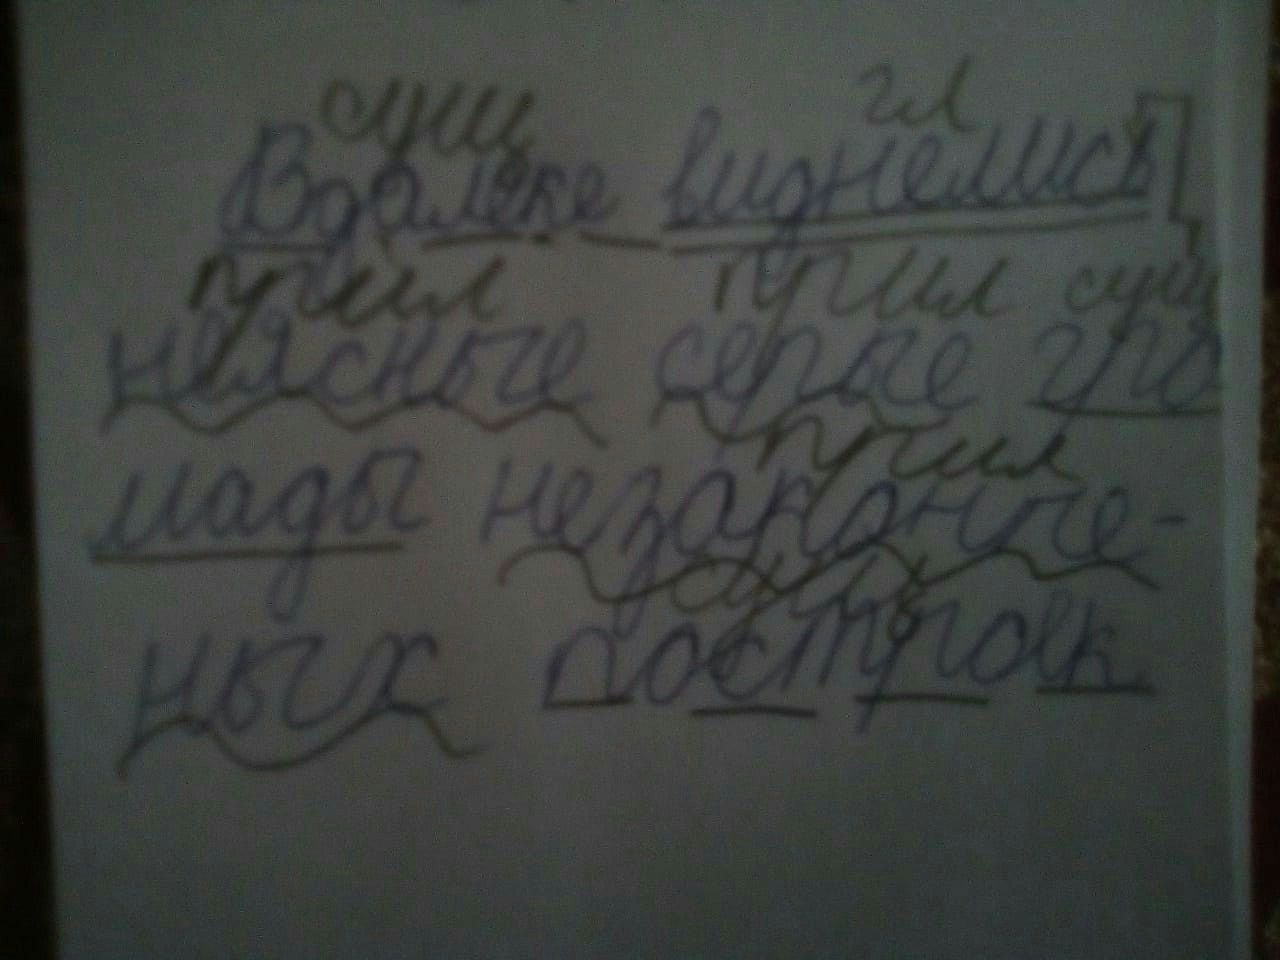 сущ гл
Вдалеке виднелись
прил прил сущ
неясные серые гро
прил
мады незаконче-
сущ
ных построек